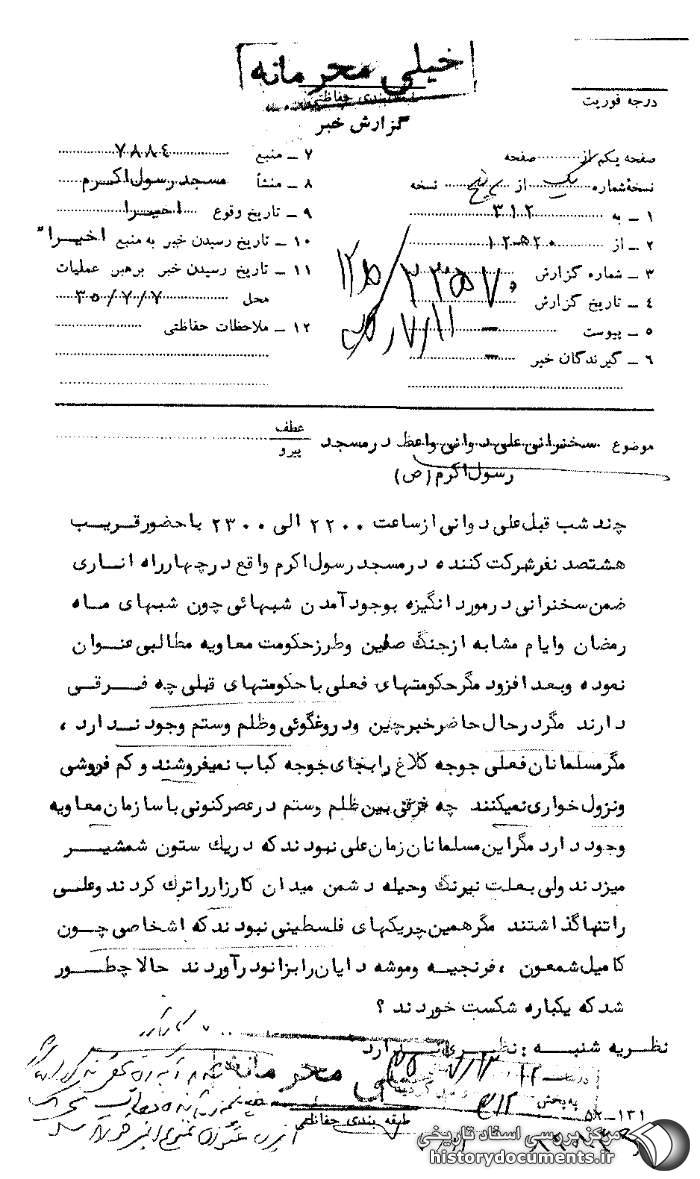 خیلی محرمانه
طبقه بندی حفاظتی
درجه فوریت
گزارش خبر
صفحه یکم از صفحه
نسخه شماره یک از پنج نسخه
۱ ــ به ۳۱۲
۲ ــ از ۱۲ه۲۰
۳ ــ شماره گزارش
۴ ــ تاریخ گزارش
۵ ــ پیوست ــ
۶ ــ گیرندگان خبر ــ
۷ ــ منبع ۷۸۸۴
۸ ــ منشأ مسجد رسول اکرم
۹ ــ تاریخ وقوع اخیرا
۱۰ ــ تاریخ رسیدن خبر به منبع اخیرا"
۱۱ ــ تاریخ رسیدن خبر برهبر عملیات
محل ۳۵/۷/۷
۱۲ ــ ملاحظات حفاظتی
موضوع سخنرانی علی دوانی واعظ در مسجد
رسول اکرم (ص)
عطف
پیرو
چند شب قبل علی دوانی از ساعت ۲۲۰۰ الی ۲۳۰۰ با حضور قریب
هشتصد نفر شرکت کننده در مسجد رسول اکرم واقع در چهارراه اناری
ضمن سخنرانی در مورد انگیزه بوجود آمدن شبهائی چون شبهای ماه
رمضان وایام مشابه از جنگ صفین وطرز حکومت معاویه مطالبی عنوان
نموده وبعد افزود مگر حکومتهای فعلی با حکومتهای قبلی چه فرقی
دارند مگر در حال حاضر خبرچین ودروغگوئی وظلم وستم وجود ندارد ،
مگر مسلمانان فعلی جوجه کلاغ را بجای جوجه کباب نمیفروشند و کم فروشی
ونزول خواری نمیکنند چه فرقی بین ظلم وستم در عصر کنونی با سازمان معاویه
وجود دارد مگر این مسلمانان زمان علی نبودند که در یك ستون شمشیر
میزدند ولی بعلت نیرنگ وحیله دشمن میدان کارزار را ترك کردند وعلی
را تنها گذاشتند مگر همین چریکهای فلسطینی نبودند که اشخاصی چون
کامیل شمعون ، فرنجیه وموشه دایان را بزانو در آوردند حالا چطور
شد که یکباره شکست خوردند ؟
نظریه شنبه : نظری ندارد
خیلی محرمانه
طبقه بندی حفاظتی
۵۸-۱۳۱
مرکز بررسی اسناد تاریخی
historydocuments.ir